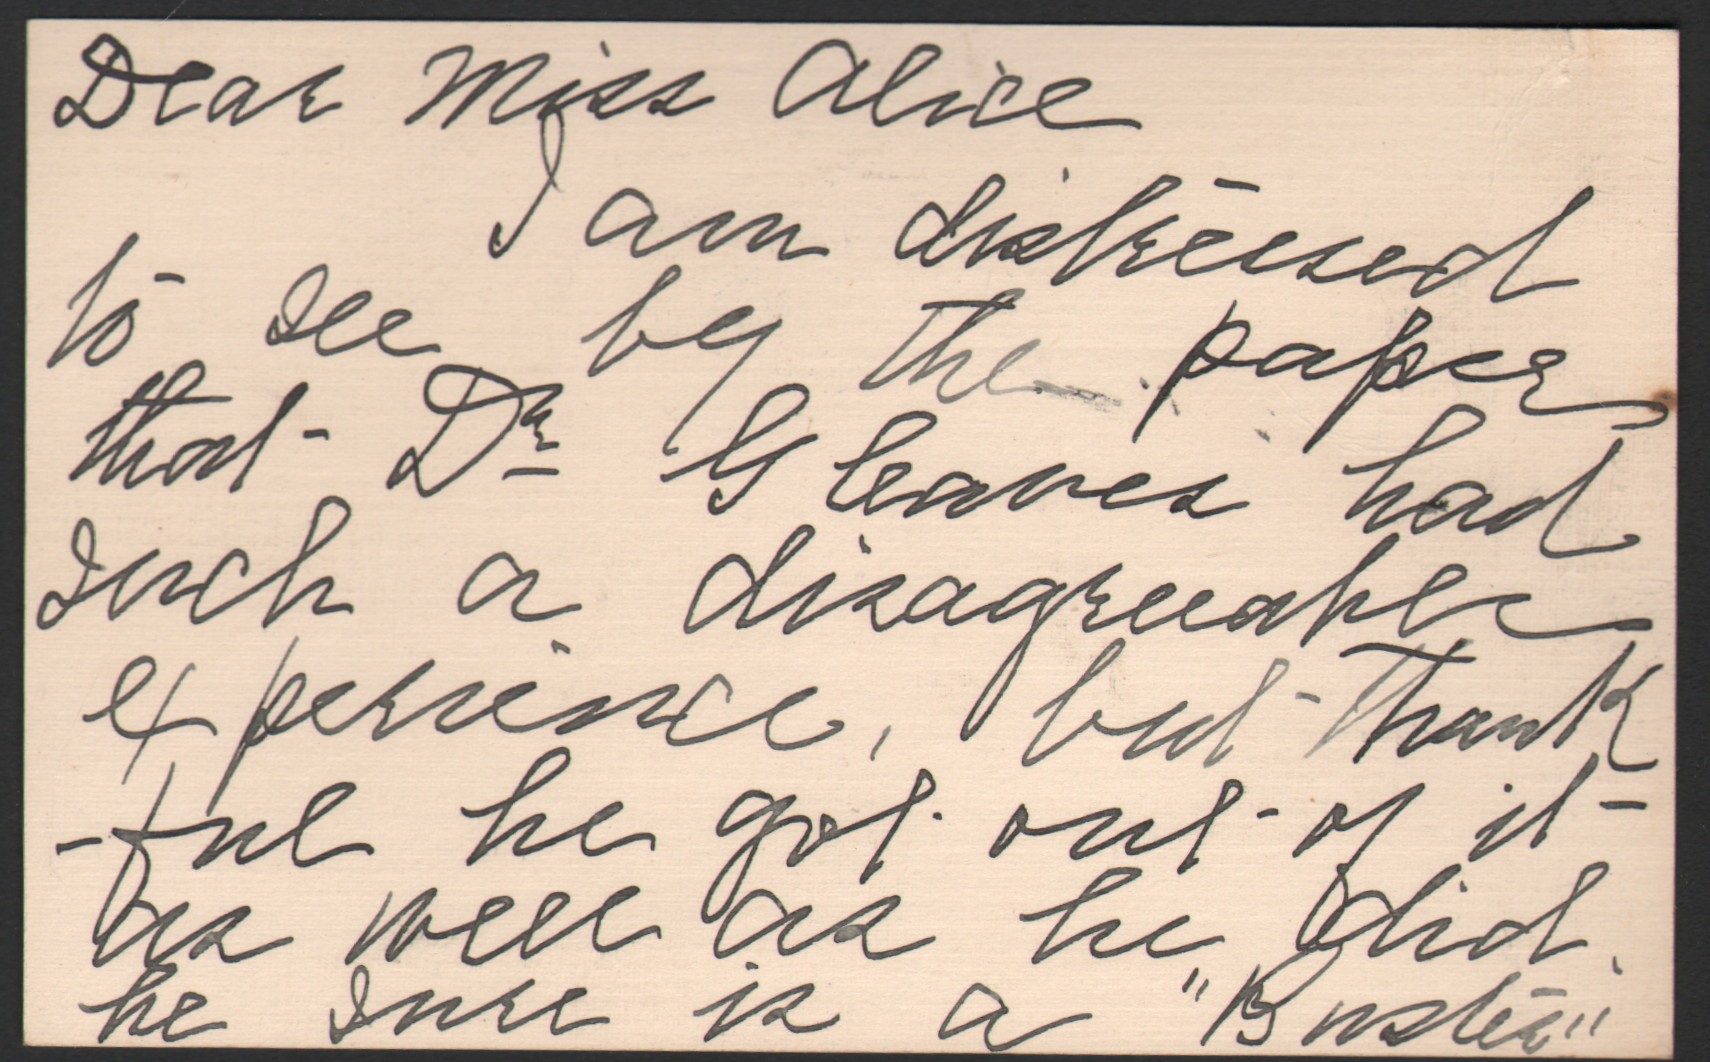 Dear Miss Alice
I am distressed
to see by the paper
that Dr Gleaves had
such a disagreeable
experience, but thank
-ful he got out of it
as well as he did.
he sure is a "Buster"